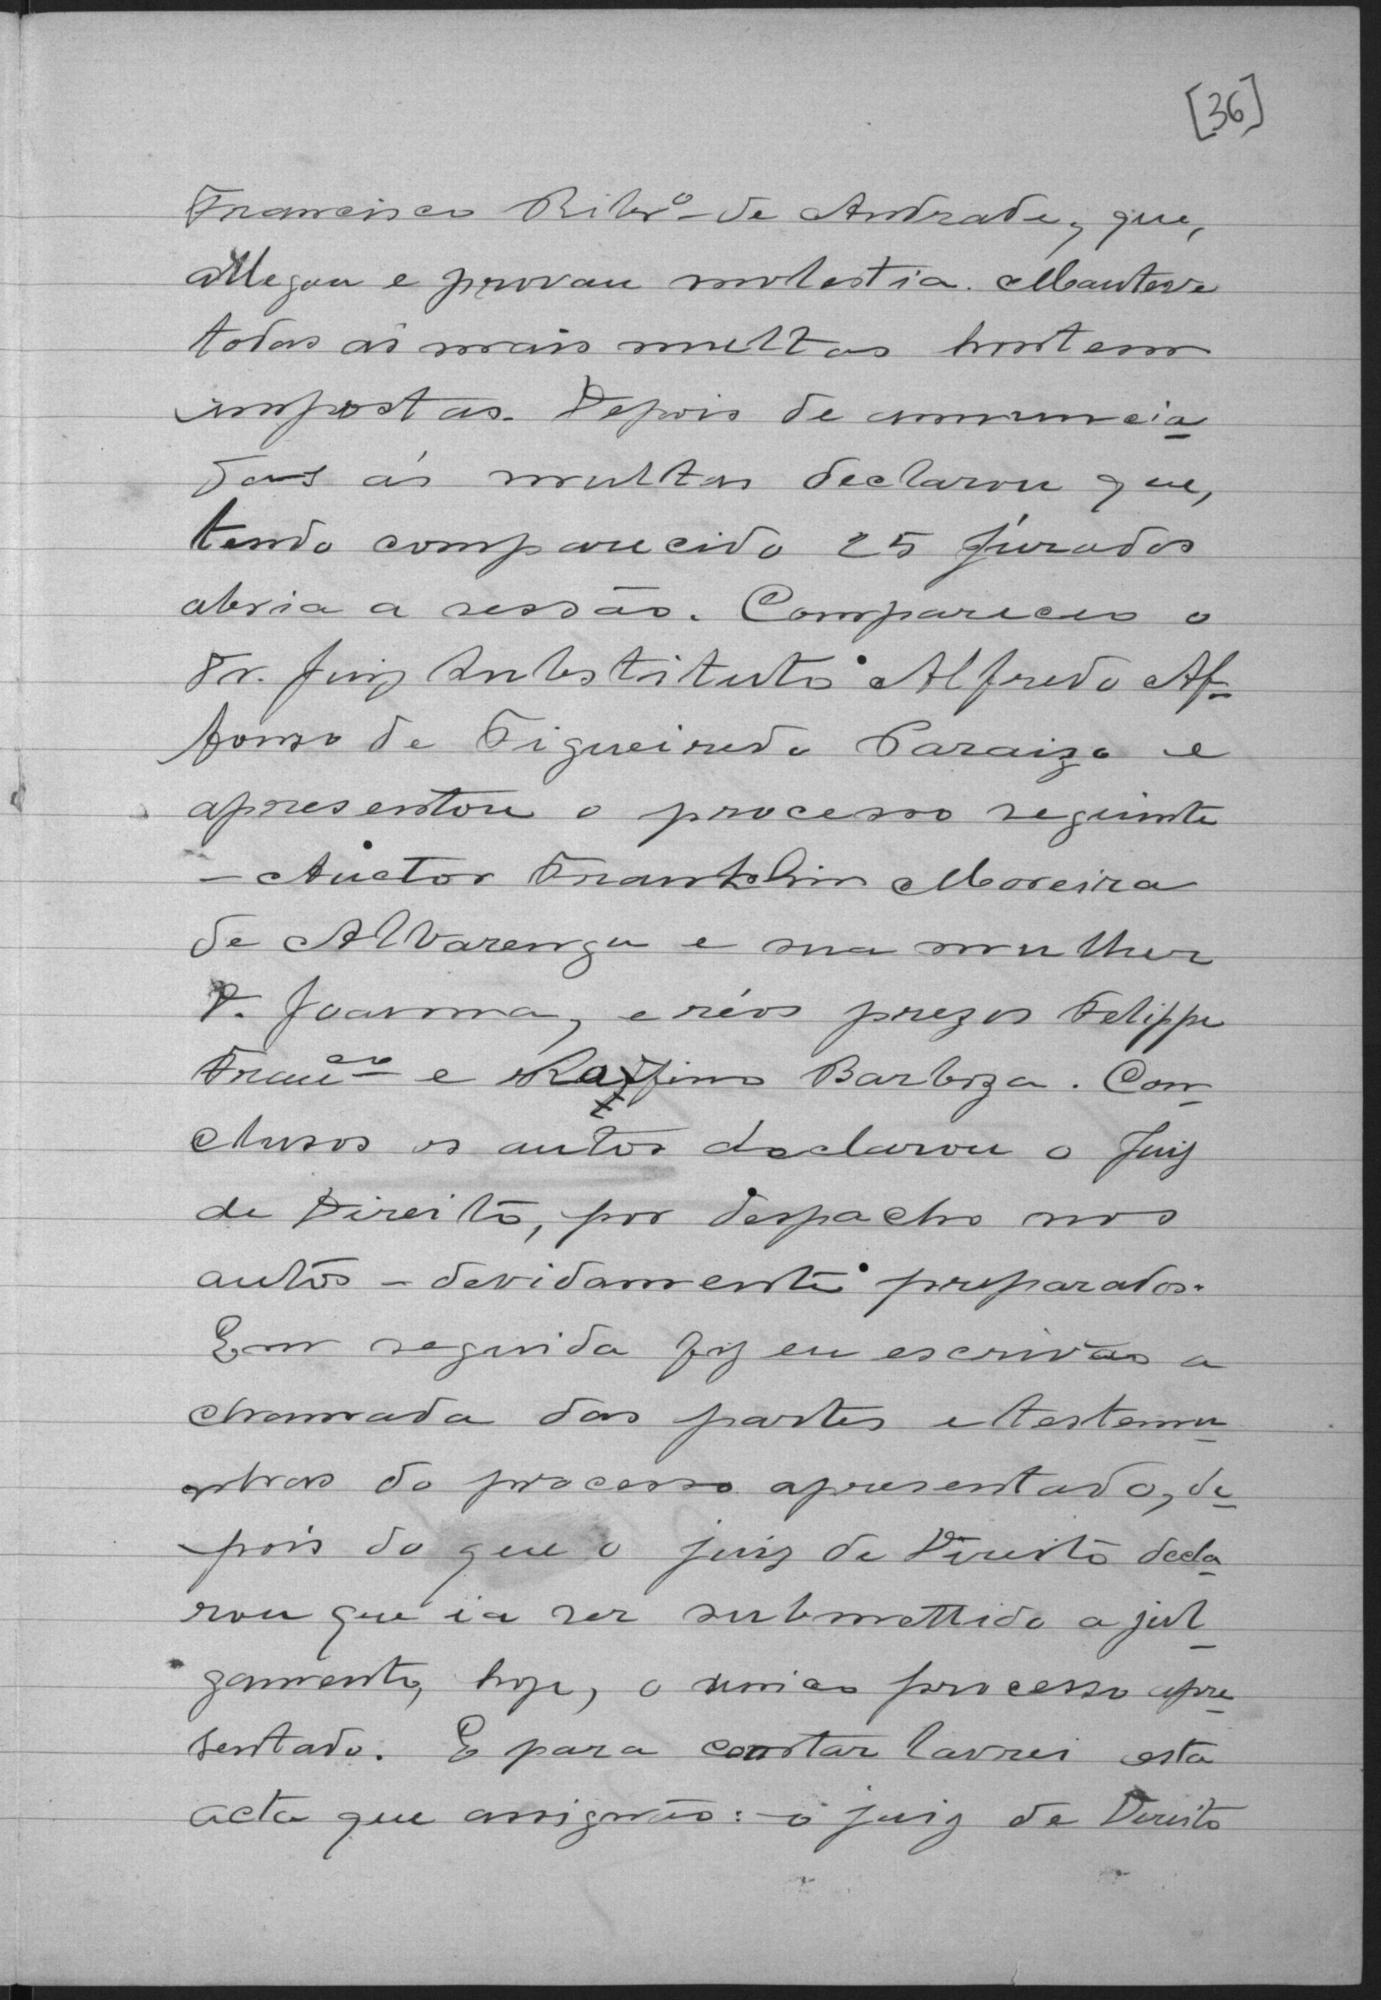 [36]
Francisco Ribrº de Andrade, que,
allegou e provou molestia. Manteve
todas as mais multas hontem
impostas. Depois de annuncia-
das as multas declarou que,
tendo comparecido 25 jurados
abria a sessão. Compareceu o
Dr. Juiz Substituto Alfredo Af-
fonso de Figueiredo Paraizo e
apresentou o processo seguinte
— Auctor Franklin Moreira
de Alvarenga e sua mulher
D. Joanna, e réos prezos Felippe
Francco e Ruffino Barboza. Con-
clusos os autos declarou o Juiz
de Direito, por despacho nos
autos – devidamente preparados.
Em seguida fiz eu escrivão a
chamada das partes e testemu-
nhas do processo apresentado, de-
pois do que o juiz de Direito decla-
rou que ia ser submettido a jul-
gamento, hoje, o unico processo apre-
sentado. E para constar lavrei esta
acta que assignão: o juiz de Direito